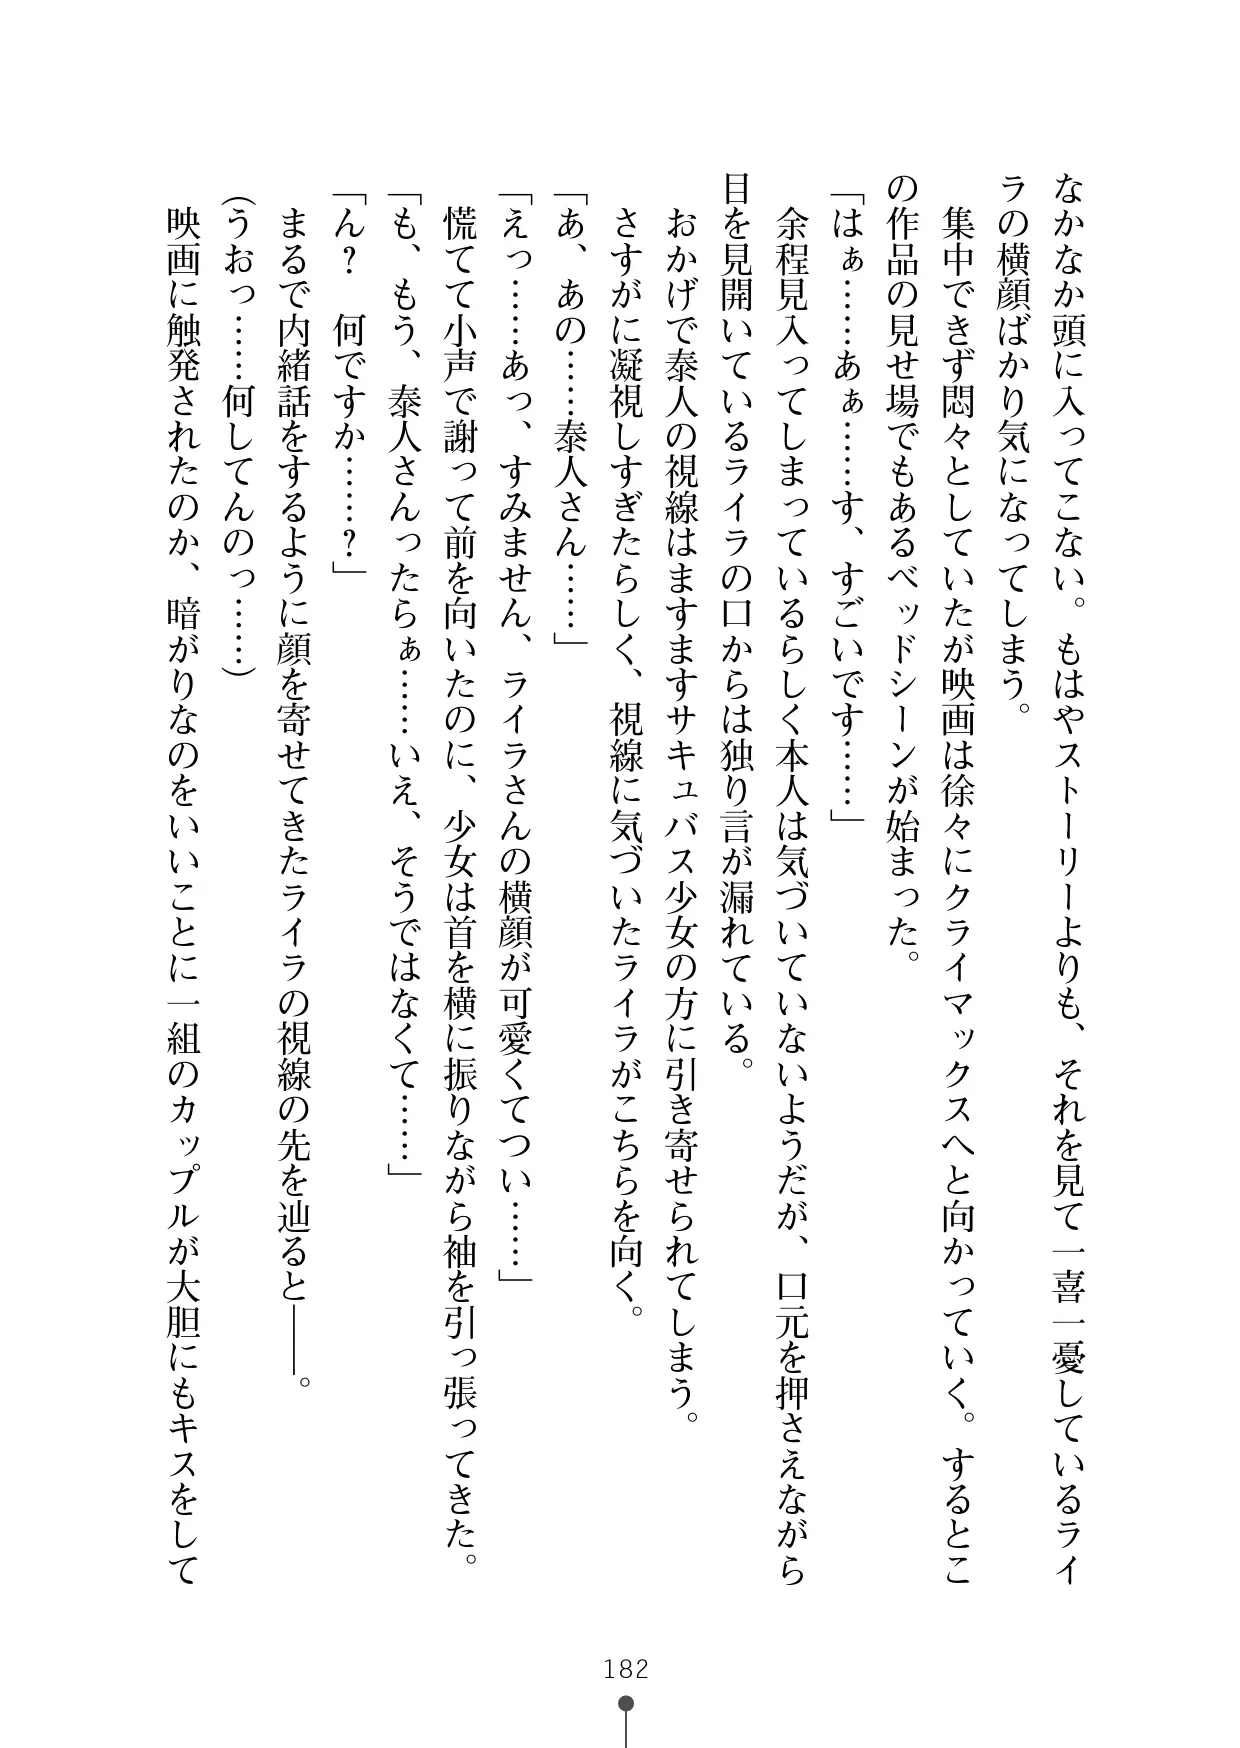 なかなか頭に入ってこない。もはやストーリーよりも、それを見て一喜一憂しているライ
ラの横顔ばかり気になってしまう。
　集中できず悶々としていたが映画は徐々にクライマックスへと向かっていく。するとこ
の作品の見せ場でもあるベッドシーンが始まった。
「はぁ……あぁ……す、すごいです……」
　余程見入ってしまっているらしく本人は気づいていないようだが、口元を押さえながら
目を見開いているライラの口からは独り言が漏れている。
　おかげで泰人の視線はますますサキュバス少女の方に引き寄せられてしまう。
　さすがに凝視しすぎたらしく、視線に気づいたライラがこちらを向く。
「あ、あの……泰人さん……」
「えっ……あっ、すみません、ライラさんの横顔が可愛くてつい……」
　慌てて小声で謝って前を向いたのに、少女は首を横に振りながら袖を引っ張ってきた。
「も、もう、泰人さんったらぁ……いえ、そうではなくて……」
「ん？　何ですか……？」
　まるで内緒話をするように顔を寄せてきたライラの視線の先を辿ると――。
（うおっ……何してんのっ……）
　映画に触発されたのか、暗がりなのをいいことに一組のカップルが大胆にもキスをして
182